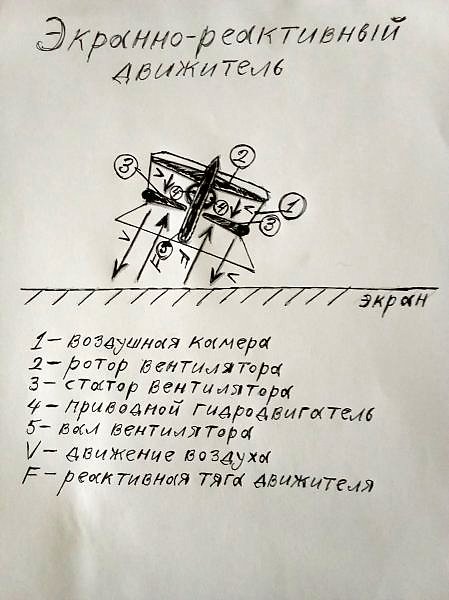 Экранно-реактивный
движитель
3
2
V
4
4
V
1
3
V
5
F
F
V
экран
1 – воздушная камера
2 – ротор вентилятора
3 – статор вентилятора
4 – приводной гидродвигатель
5 – вал вентилятора
V – движение воздуха
F – реактивная тяга движителя